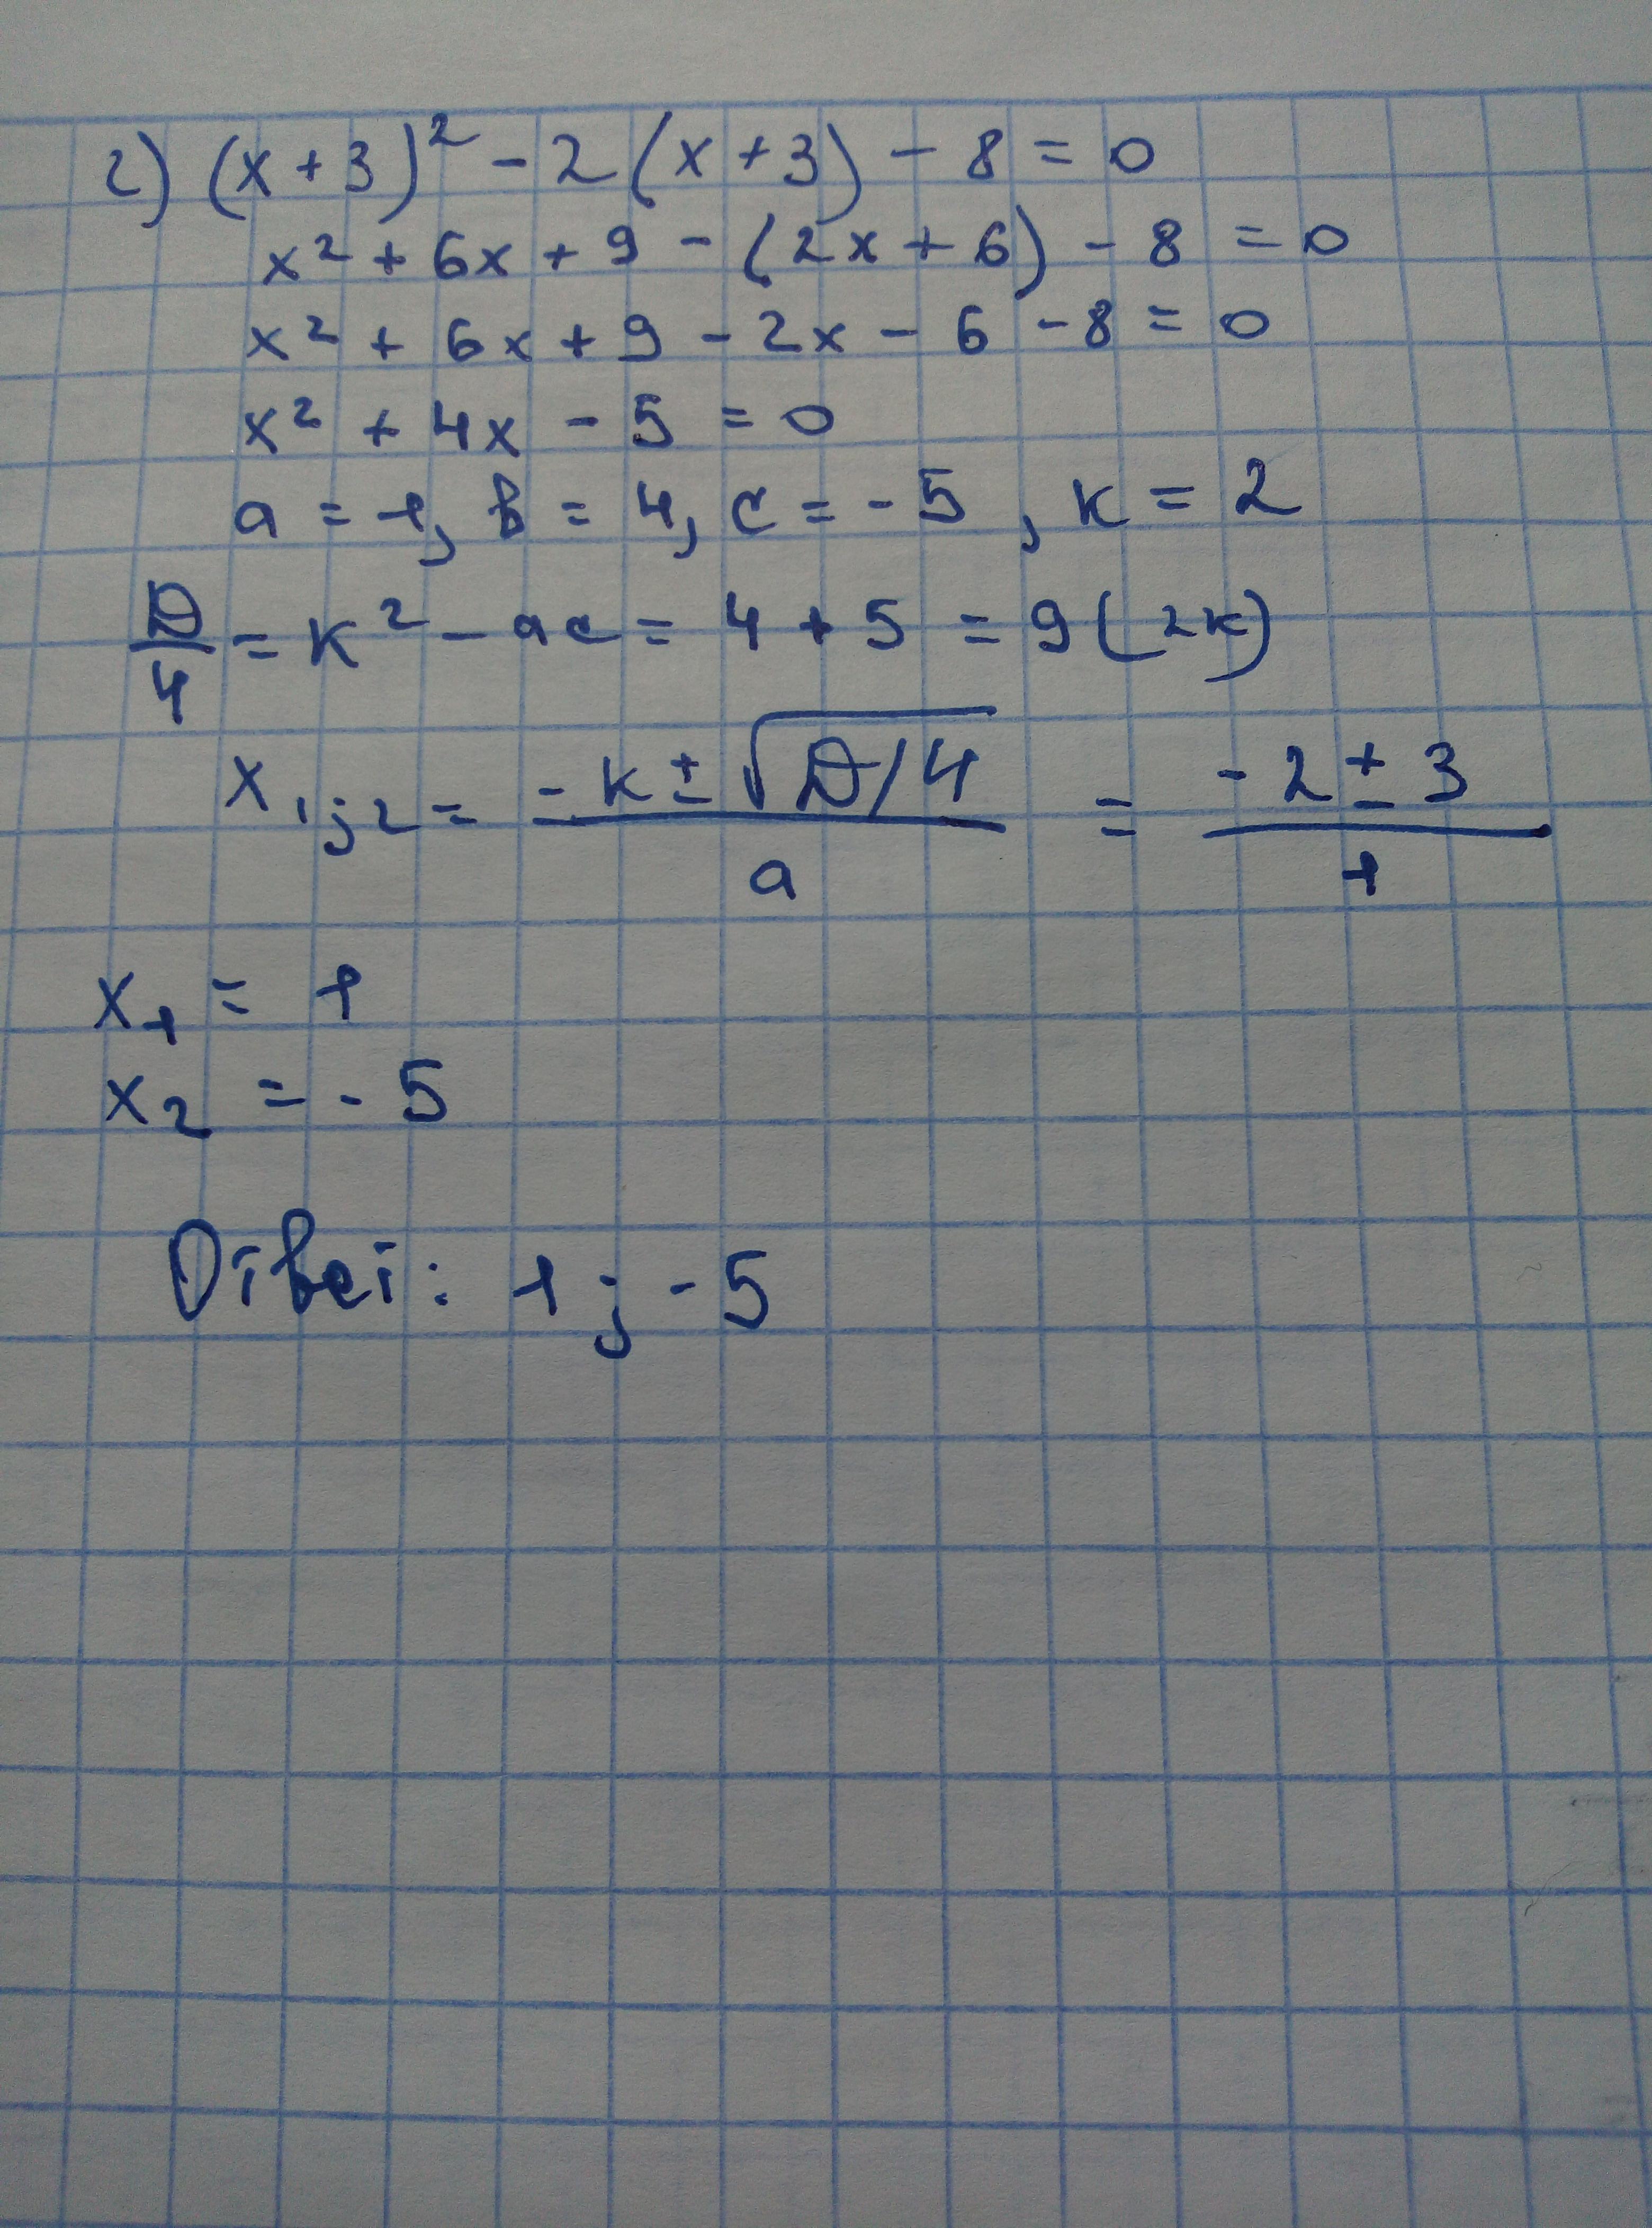 г) (x+3)² - 2(x+3) - 8 = 0
x² + 6x + 9 - (2x + 6) - 8 = 0
x² + 6x + 9 - 2x - 6 - 8 = 0
x² + 4x - 5 = 0
a = 1, b = 4, c = -5, к = 2
D/4 = к² - ac = 4 + 5 = 9 (2к)
x₁;₂ = (-к ± √D/4)/a = (-2 ± 3)/1
x₁ = 1
x₂ = -5
Ответ: 1; -5